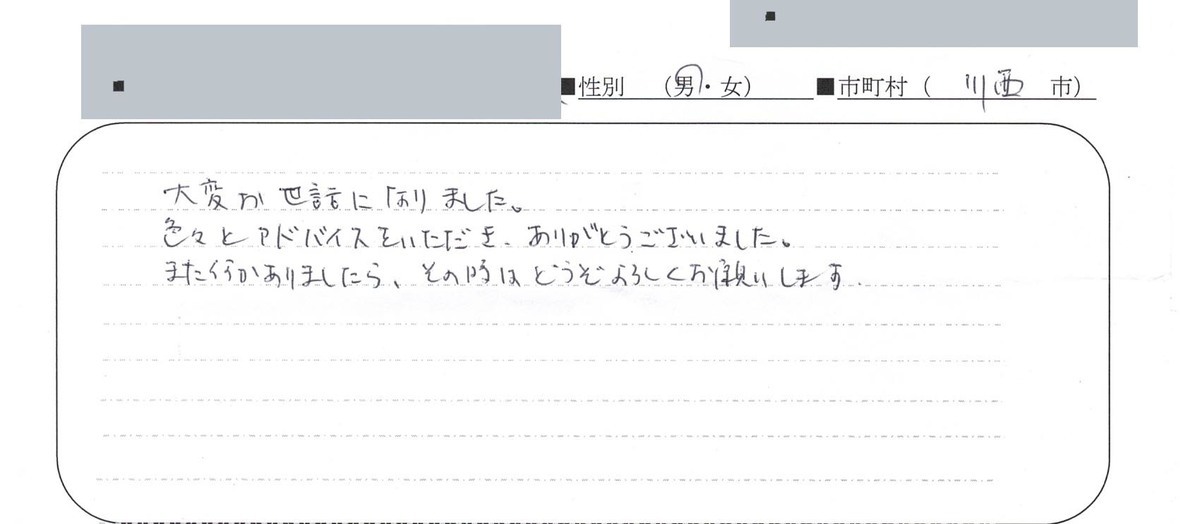 ■性別 （男・女） ■市町村（ 川西 市）
大変お世話になりました。
色々とアドバイスをいただき、ありがとうございました。
また何かありましたら、その時はどうぞよろしくお願いします